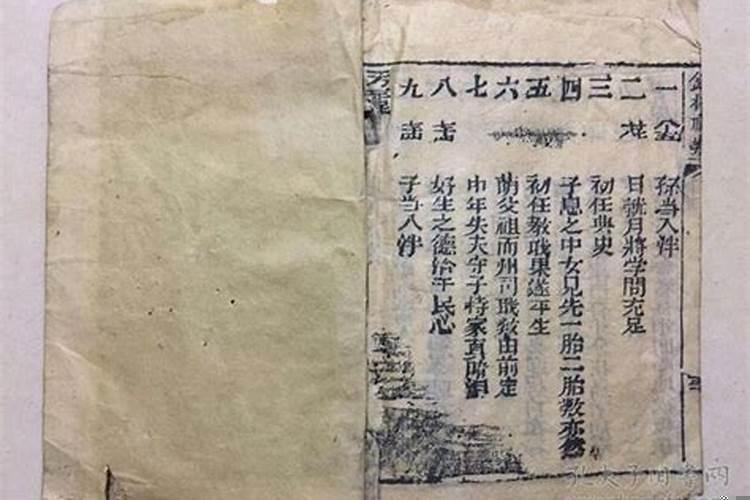 一 孙当入泮
二 日就月將学問充足
三 初任典史
四 子息之中女兄先一胎二胎数亦然
五 初任教职果遂平生
六 荫父祖而州司职数由前定
七 中年失夫守子持家真
八 好生之德洽于民心
九 子当入泮
孔夫子旧书网